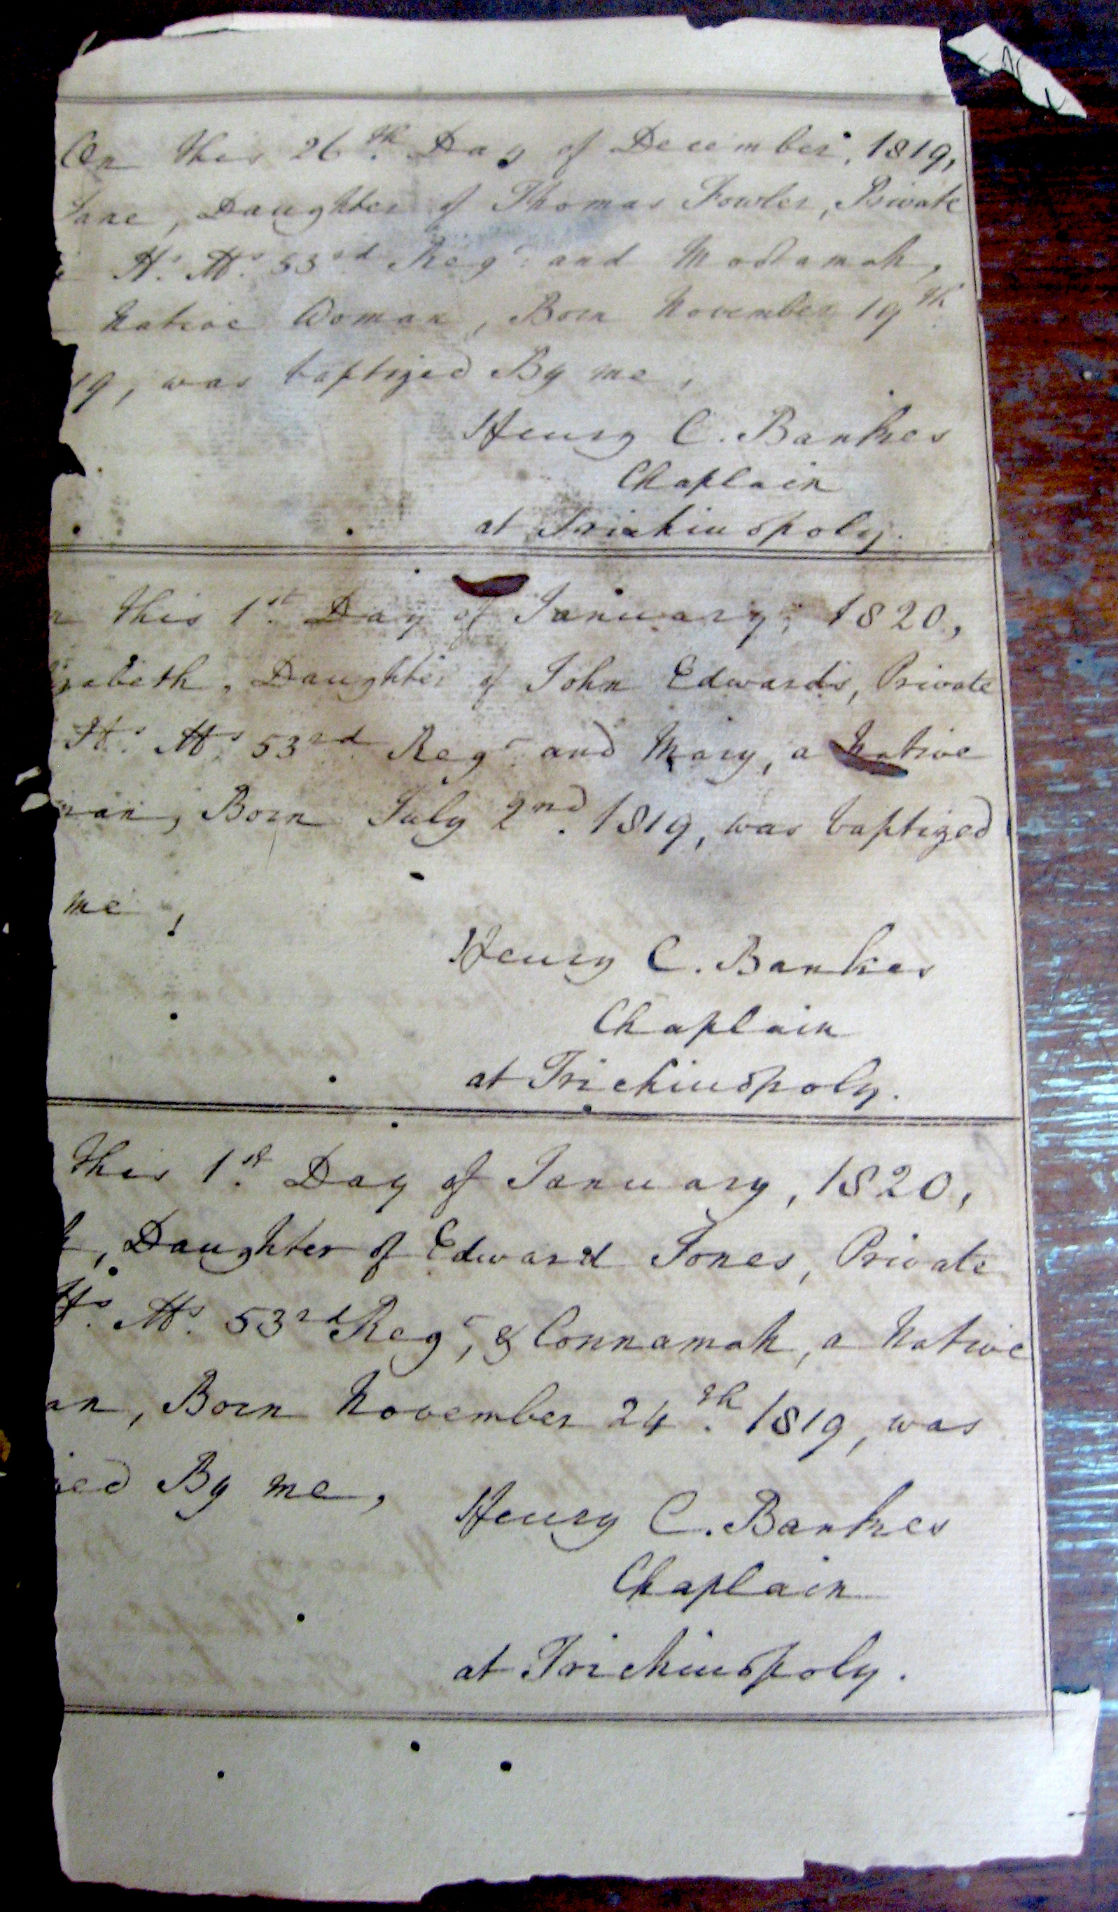 On this 26th Day of December, 1819,
Jane, Daughter of Thomas Fowler, Private
H. Ms. 53rd Regt. and Modamah,
Native Woman, Born November 19th
19, was baptized By me,
Henry C. Bankes
Chaplain
at Trichinopoly.
n this 1st Day of January, 1820,
zabeth, Daughter of John Edwards, Private
Hs. Ms. 53rd Regt. and Mary, a Native
man, Born July 2nd. 1819, was baptized
me,
Henry C. Bankes
Chaplain
at Trichinopoly.
this 1st Day of January, 1820,
h, Daughter of Edward Jones, Private
Hs. Ms. 53rd Regt, & Connamah, a Native
an, Born November 24th. 1819, was
zed By me,
Henry C. Bankes
Chaplain
at Trichinopoly.